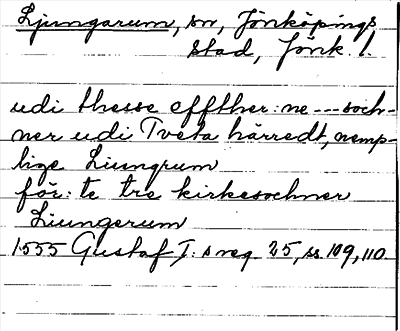 Ljungarum, sn, Jönköpings
stad, Jönk. l.
udi thesse effther: ne --- soch-
ner udi Tveta härredt, nemp-
lige Liungrum
för: te tre kirkesochner
Liungerum
1555 Gustaf I:s reg. 25, ss. 109, 110.